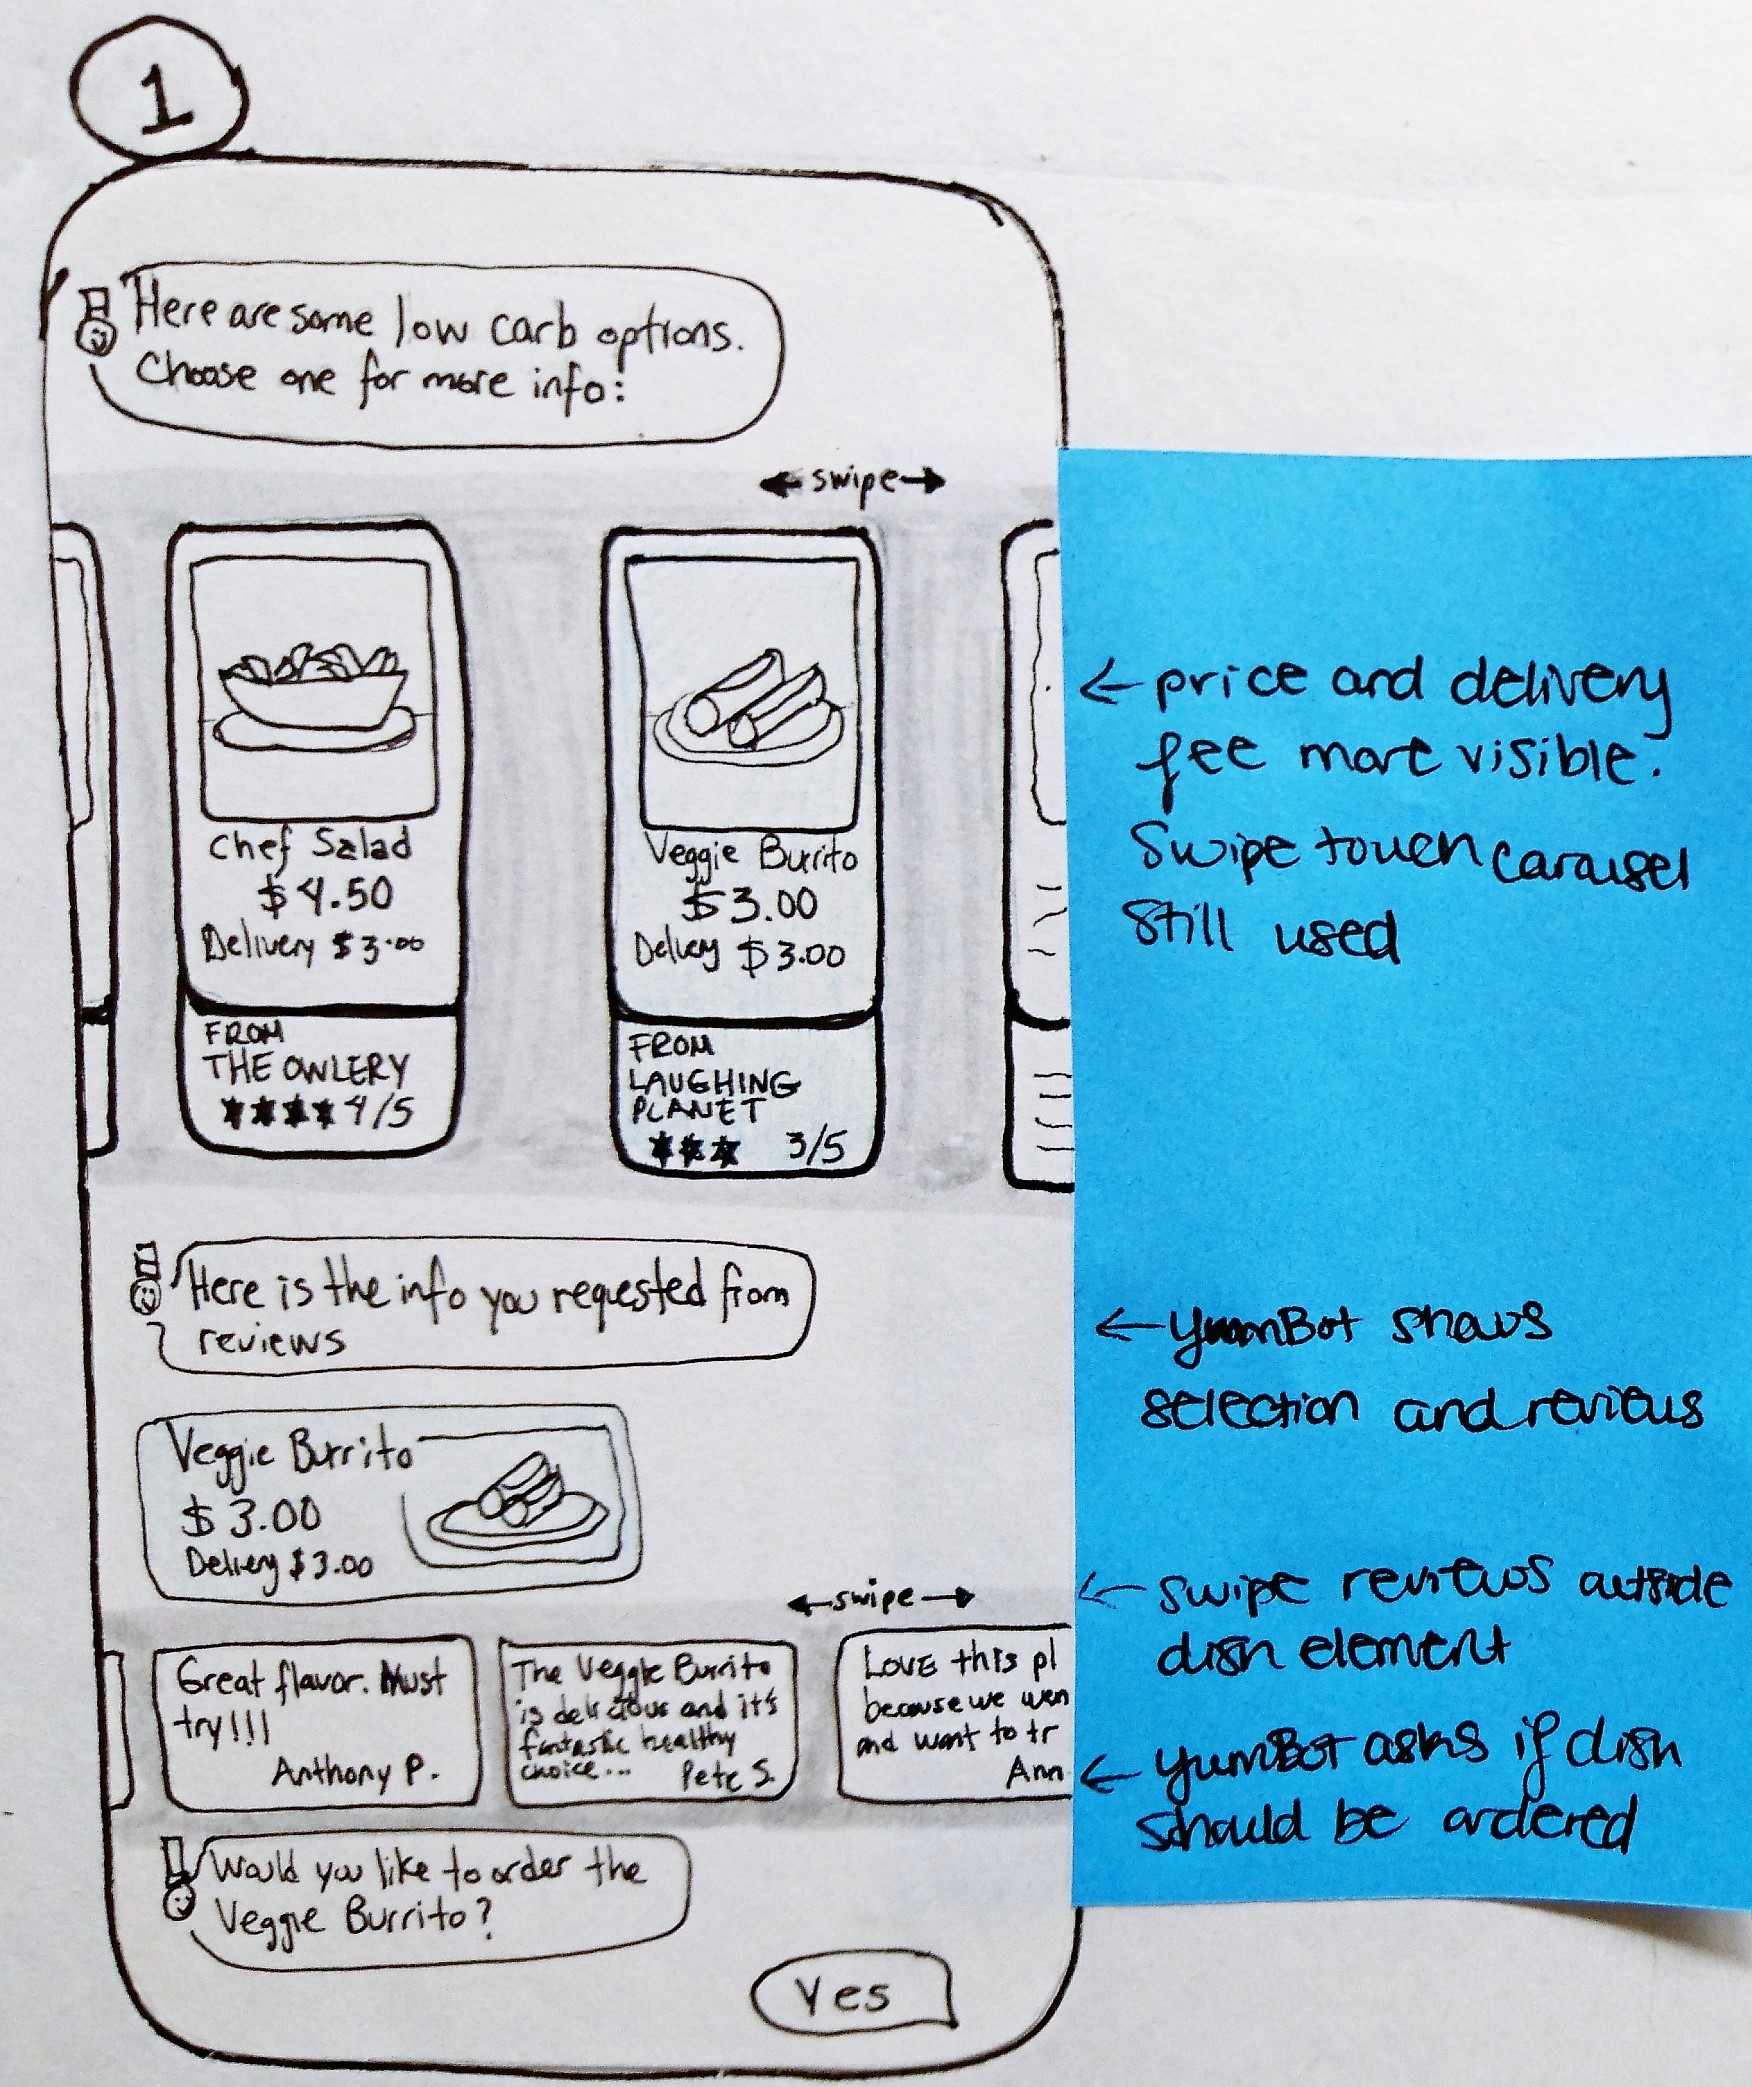 1
Here are some low carb options.
Choose one for more info:
swipe
Chef Salad
$4.50
Delivery $3.00
FROM
THE OWLERY
4/5
Veggie Burrito
$3.00
Delivery $3.00
FROM
LAUGHING
PLANET
3/5
Here is the info you requested from
reviews
Veggie Burrito
$3.00
Delivery $3.00
swipe
Great flavor. Must
try!!!
Anthony P.
The Veggie Burrito
is delicious and it's
fantastic healthy
choice...
Pete S.
LOVE this pl
because we wen
and want to tr
Ann
Would you like to order the
Veggie Burrito?
Yes
← price and delivery
fee more visible.
Swipe touch carousel
still used
← YumBot shows
selection and reviews
← swipe reviews outside
dish element
← YumBot asks if dish
should be ordered